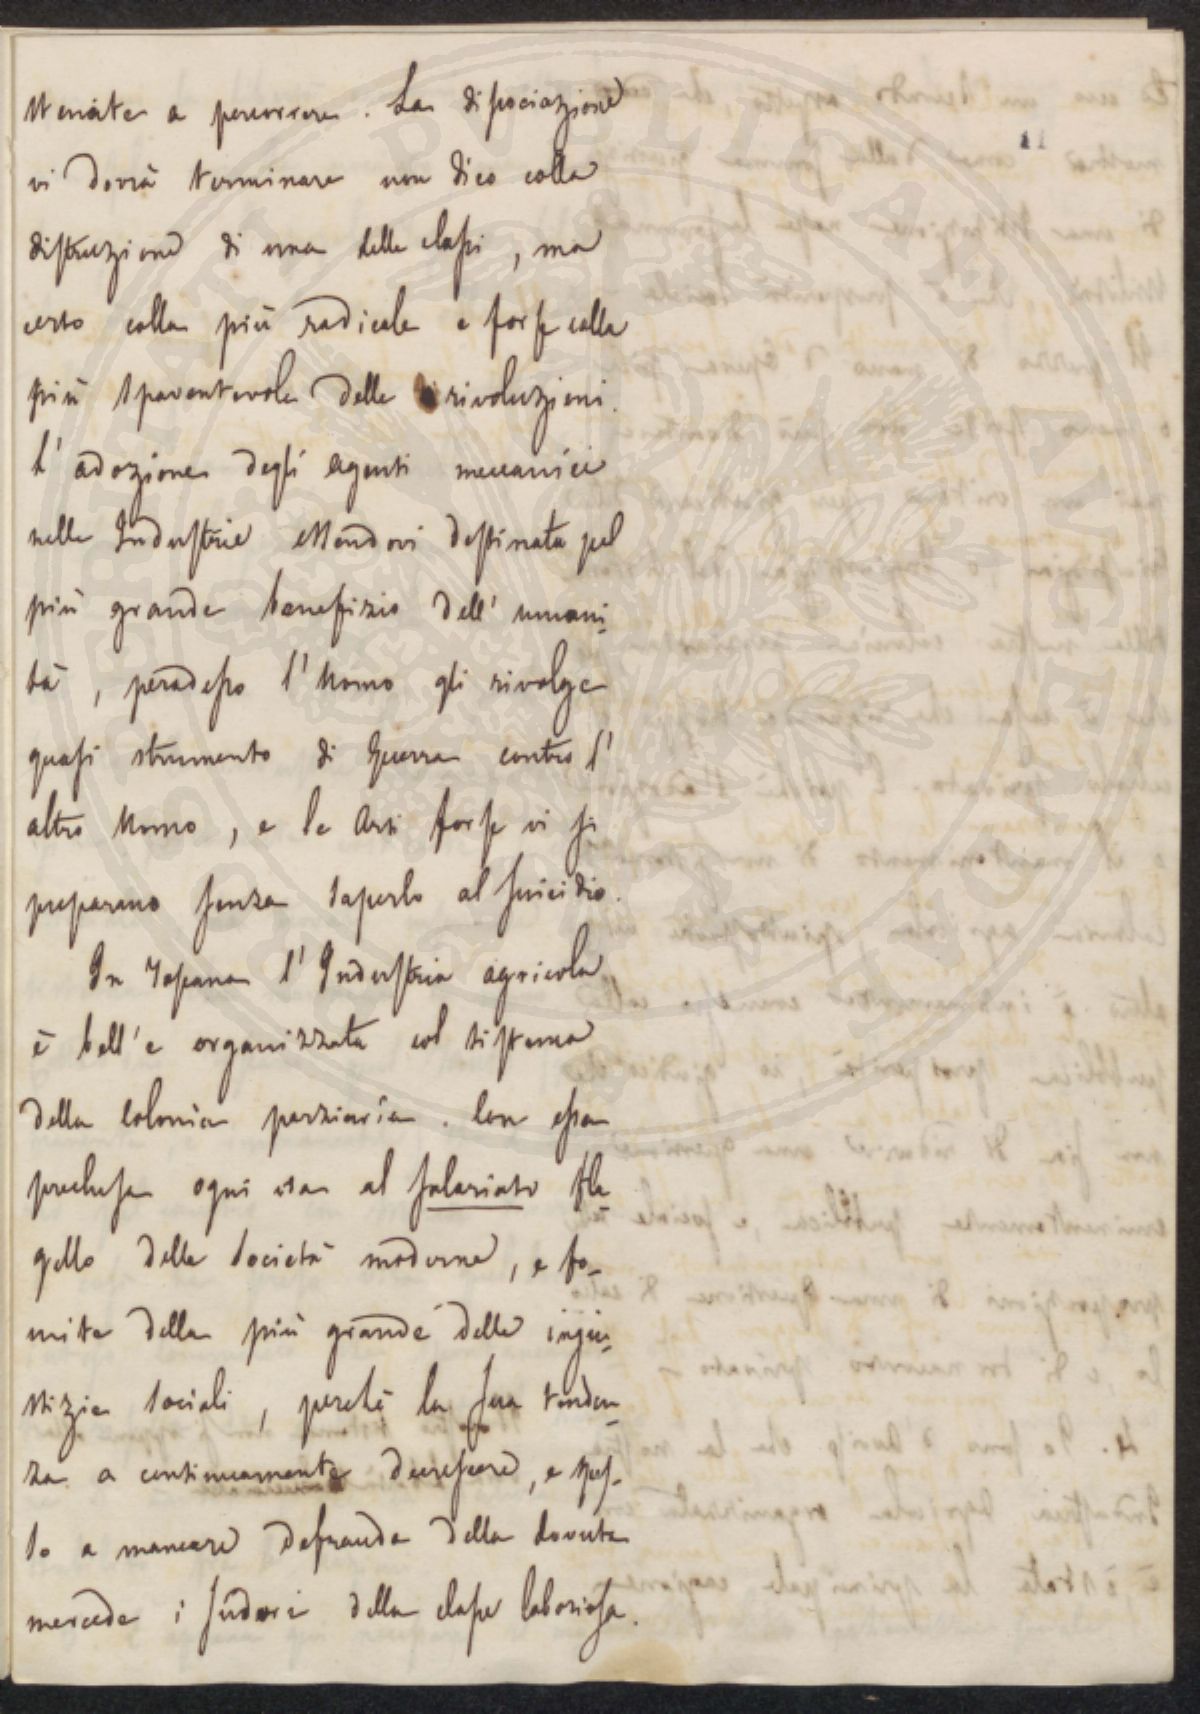 11
stenate a percorrere. La dissociazione
vi dovrà terminare non dico colla
distruzione di una delle classi, ma
certo colla più radicale e forse colla
più spaventevole delle rivoluzioni.
L'adozione degli agenti meccanici
nelle Industrie essendovi destinata pel
più grande benefizio dell'umani-
tà, peradesso l'Uomo gli rivolge
quasi strumento di Guerra contro l'
altro Uomo, e le Arti forse vi si
preparano senza saperlo al suicidio.
In Toscana l'Industria agricola
è bell'e organizzata col sistema
della Colonia parziaria. Con essa
preclusa ogni via al salariato fla-
gello delle Società moderne, e fo-
mite della più grande delle ingiu-
stizie sociali, perchè la sua tenden-
za a continuamente decrescere, e spes-
so a mancare defrauda della dovuta
mercede i sudori della classe laboriosa.